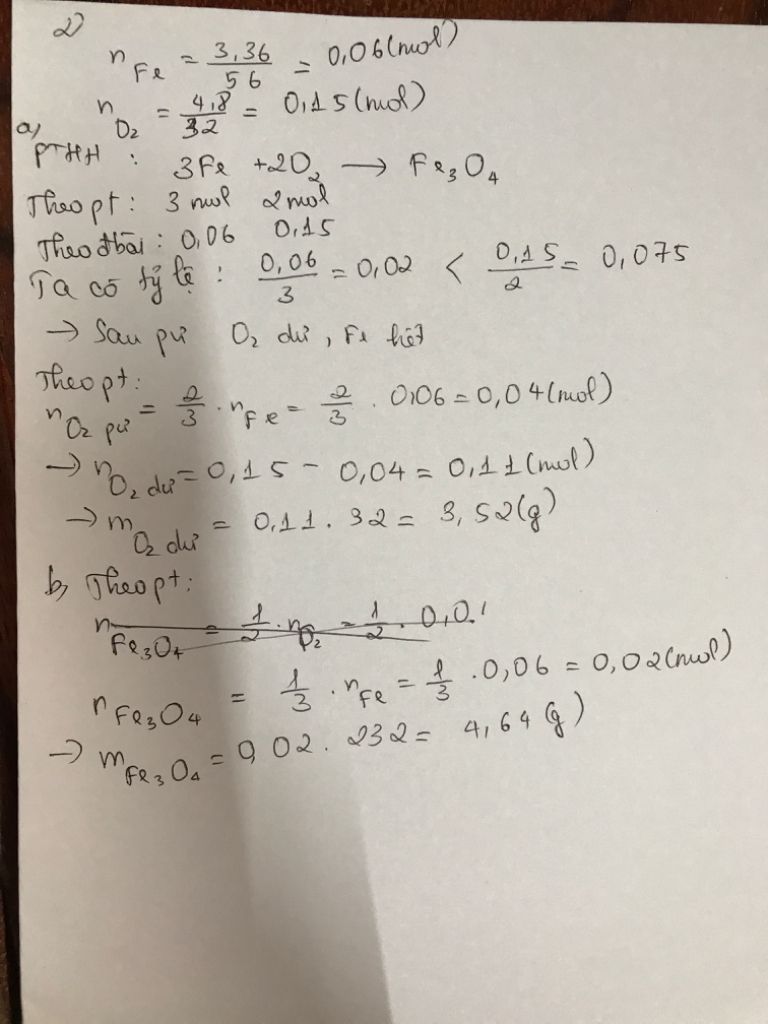 2)
n Fe = 3,36/56 = 0,06(mol)
n O2 = 4,8/32 = 0,15(mol)
a,
PTHH : 3Fe + 2O2 → Fe3O4
Theo pt : 3 mol 2 mol
Theo đbài : 0,06 0,15
Ta có tỷ lệ : 0,06/3 = 0,02 < 0,15/2 = 0,075
→ Sau pư O2 dư , Fe hết
Theo pt :
n O2 pư = 2/3 . n Fe = 2/3 . 0,06 = 0,04(mol)
→ n O2 dư = 0,15 - 0,04 = 0,11(mol)
→ m O2 dư = 0,11 . 32 = 3,52(g)
b, Theo pt :
n Fe3O4 = 1/2 . n O2 = 1/2 . 0,0
n Fe3O4 = 1/3 . n Fe = 1/3 . 0,06 = 0,02(mol)
→ m Fe3O4 = 0,02 . 232 = 4,64(g)